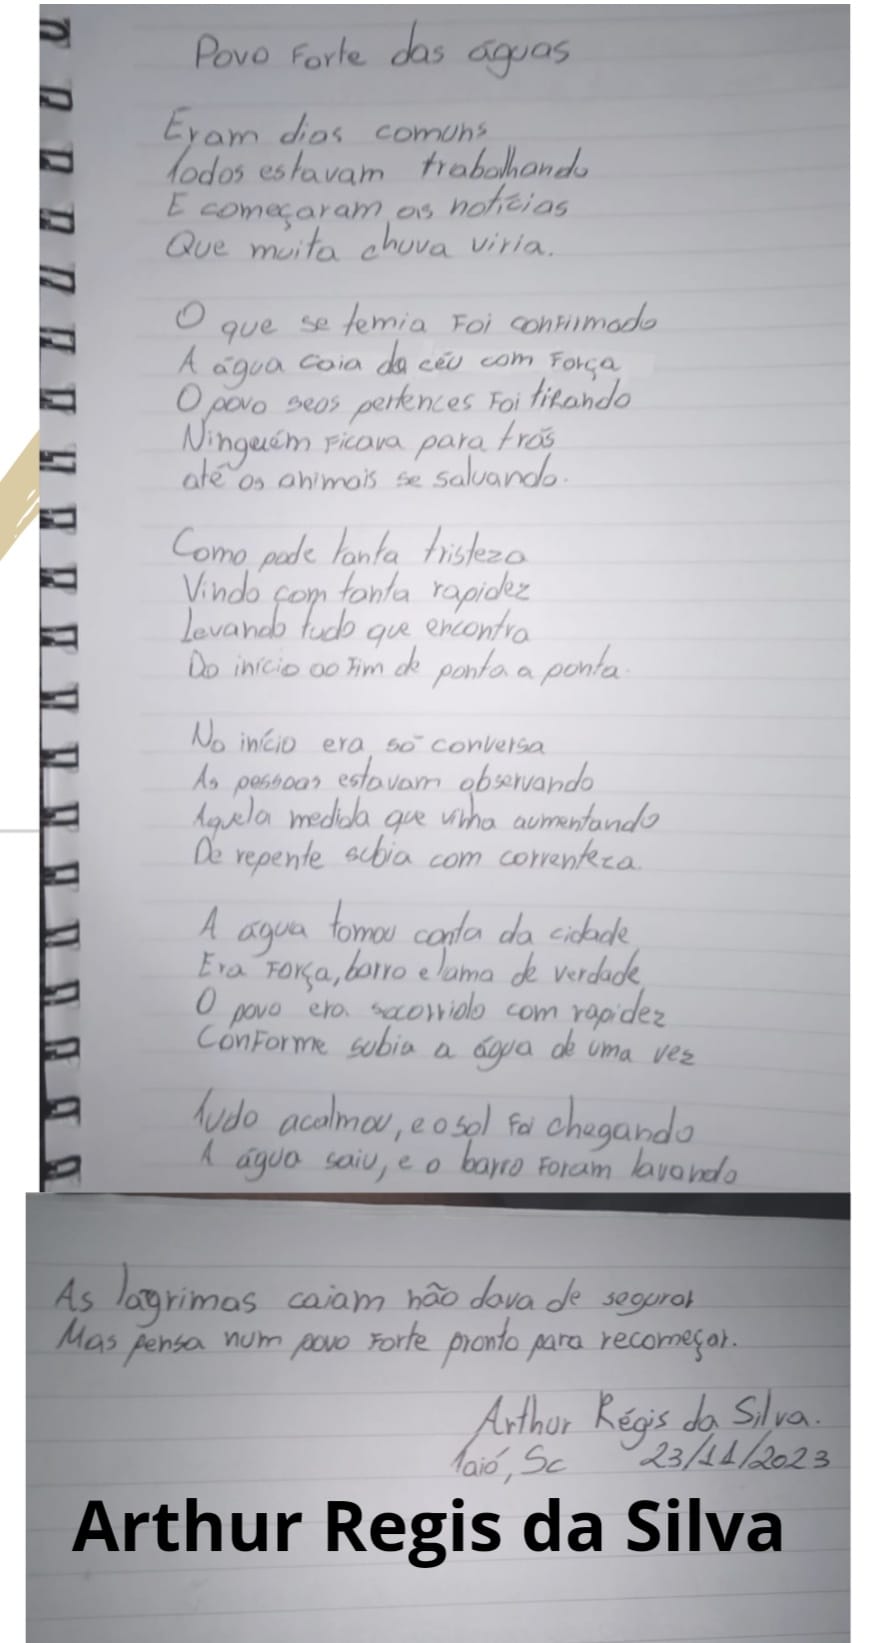 Povo Forte das águas
Eram dias comuns
Todos estavam trabalhando
E começaram as notícias
Que muita chuva viria.
O que se temia Foi confirmado
A água caia do céu com Força
O povo seos pertences Foi tirando
Ninguém Ficava para trás
até os animais se salvando.
Como pode tanta tristeza
Vindo com tanta rapidez
Levando tudo que encontra
Do início ao Fim de ponta a ponta.
No início era só conversa
As pessoas estavam observando
Aquela medida que vinha aumentando
De repente subia com correnteza.
A água tomou conta da cidade
Era Força, barro e lama de verdade
O povo era socorrido com rapidez
ConForme subia a água de uma vez
Tudo acalmou, e o sol Foi chegando
A água saiu, e o barro Foram lavando
As lágrimas caiam não dava de segurar
Mas pensa num povo Forte pronto para recomeçar.
Arthur Régis da Silva.
Taió, Sc 23/11/2023
Arthur Regis da Silva